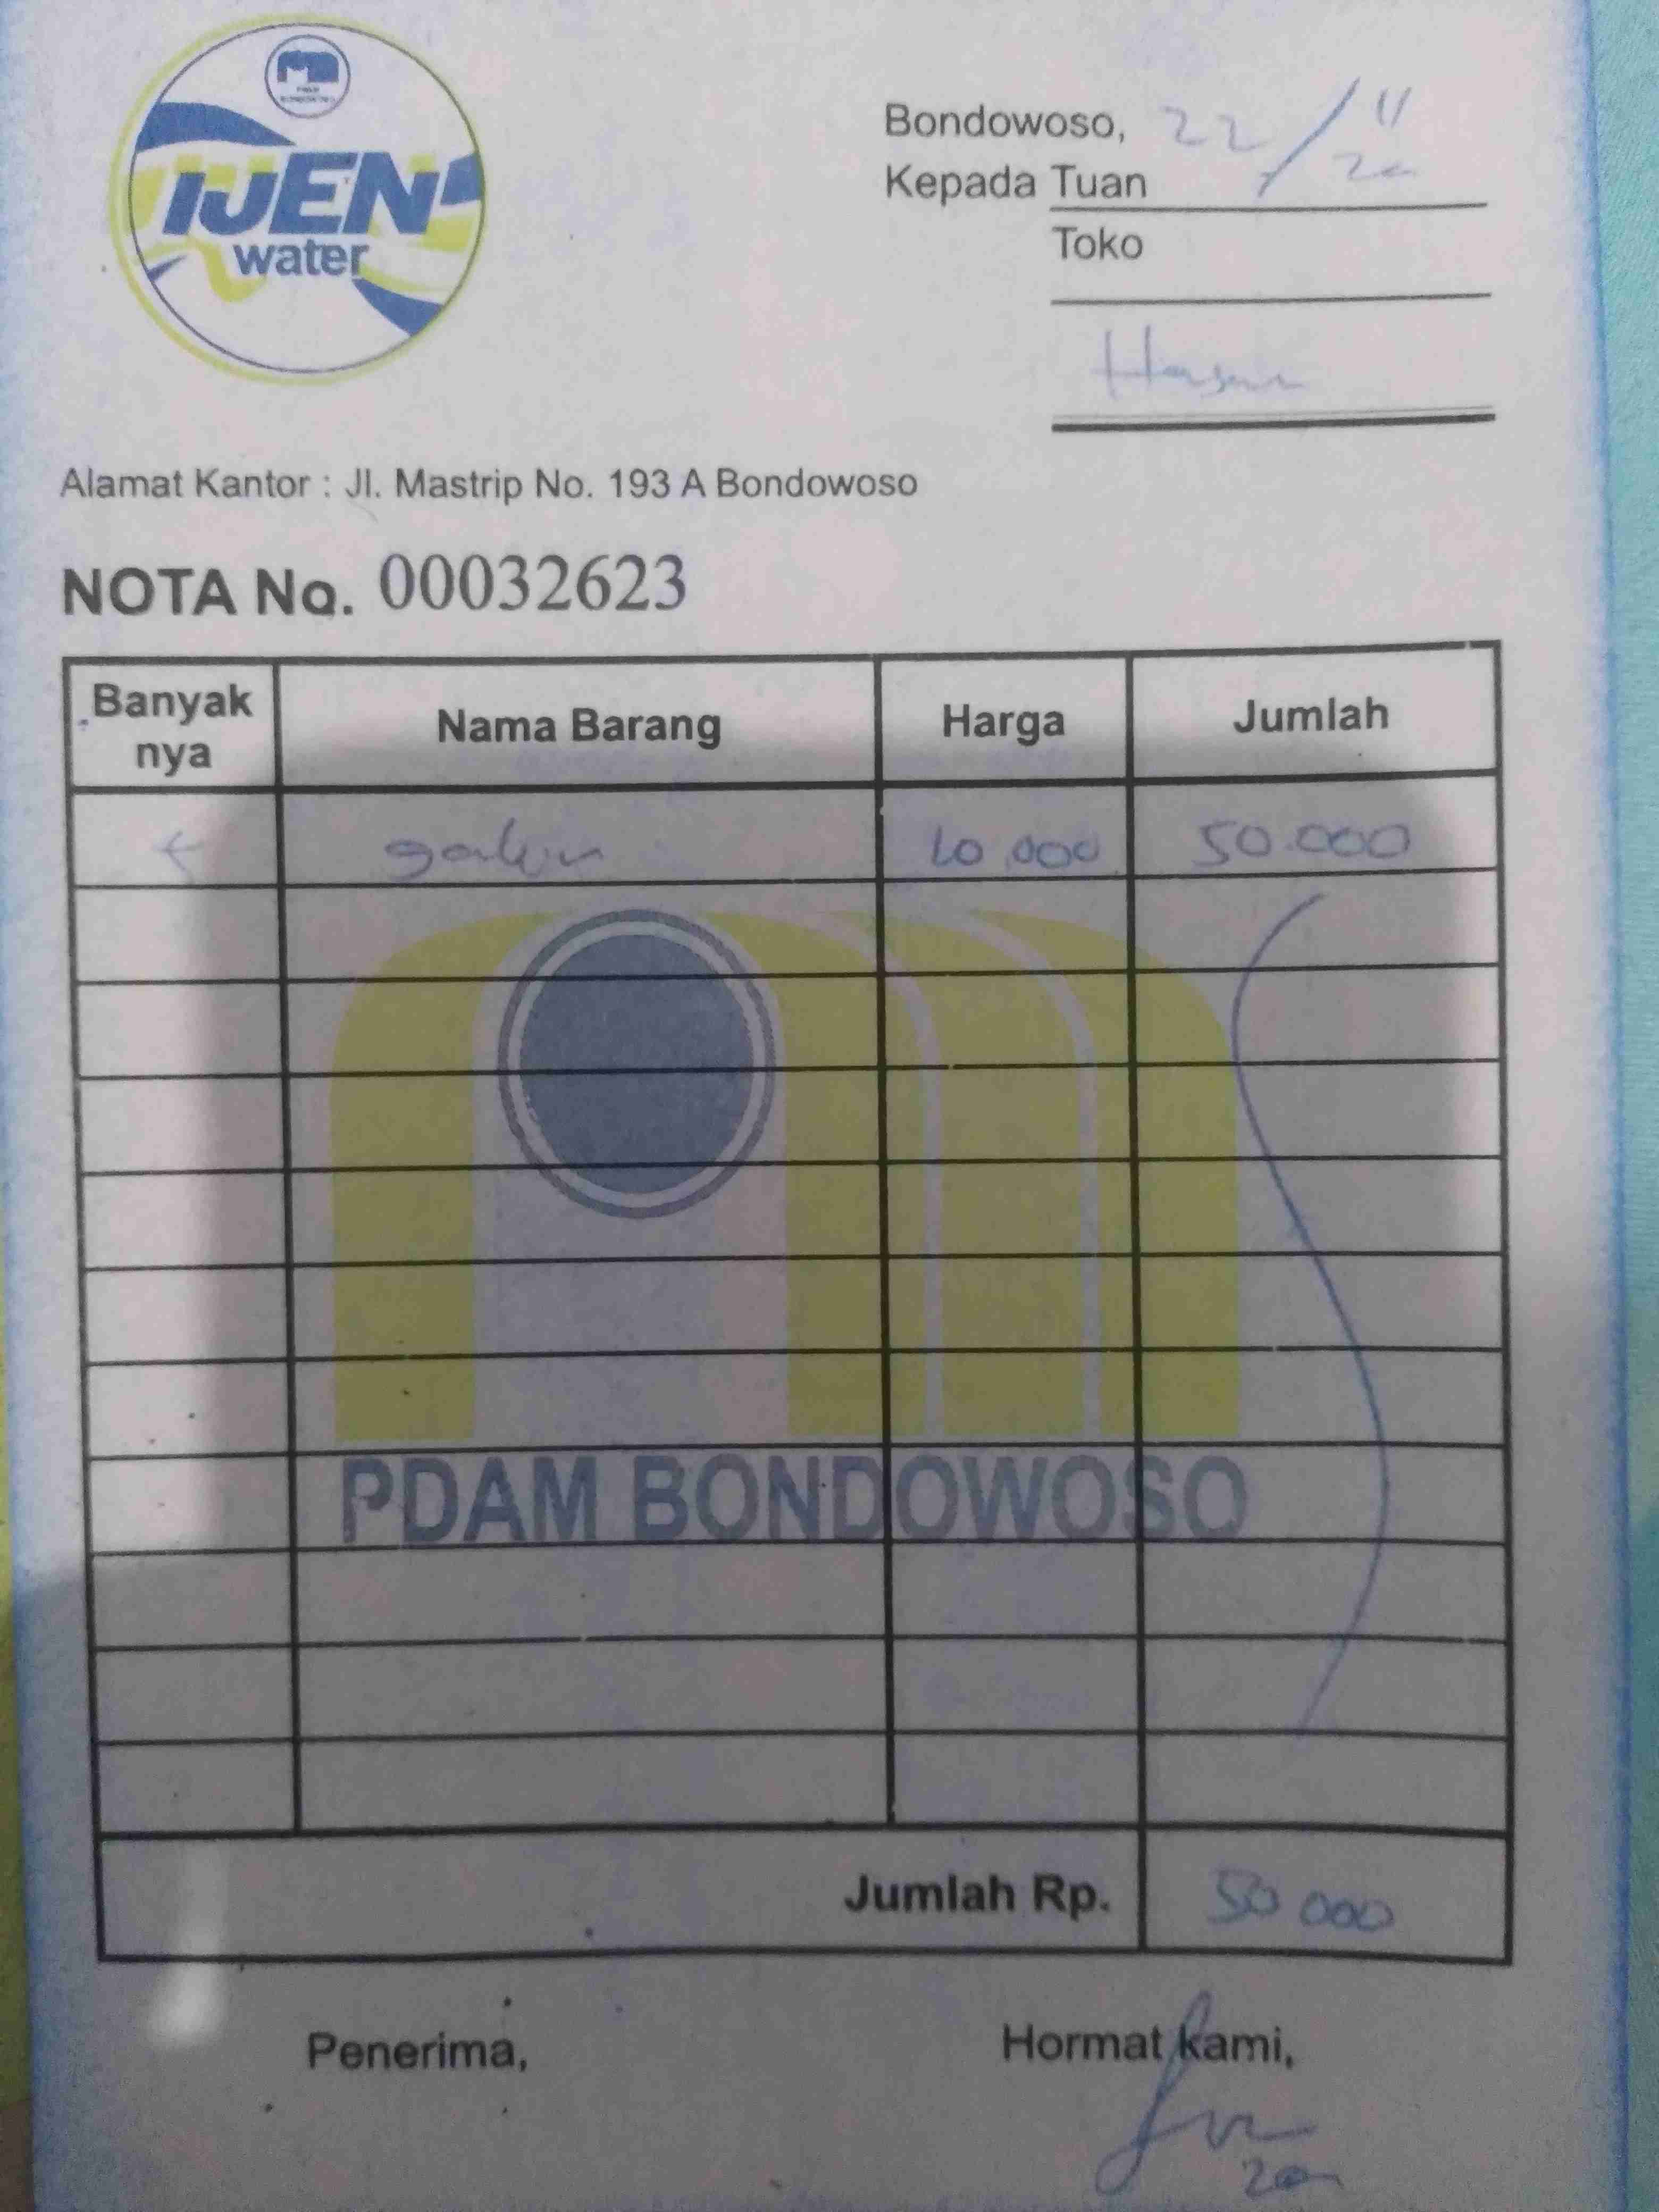 IJEN
water
Bondowoso, 22/11
Kepada Tuan
Toko
Hasan
Alamat Kantor : Jl. Mastrip No. 193 A Bondowoso
NOTA No. 00032623
Banyak nya Nama Barang Harga Jumlah
galon 10.000 50.000
PDAM BONDOWOSO
Jumlah Rp. 50 000
Penerima, Hormat kami,